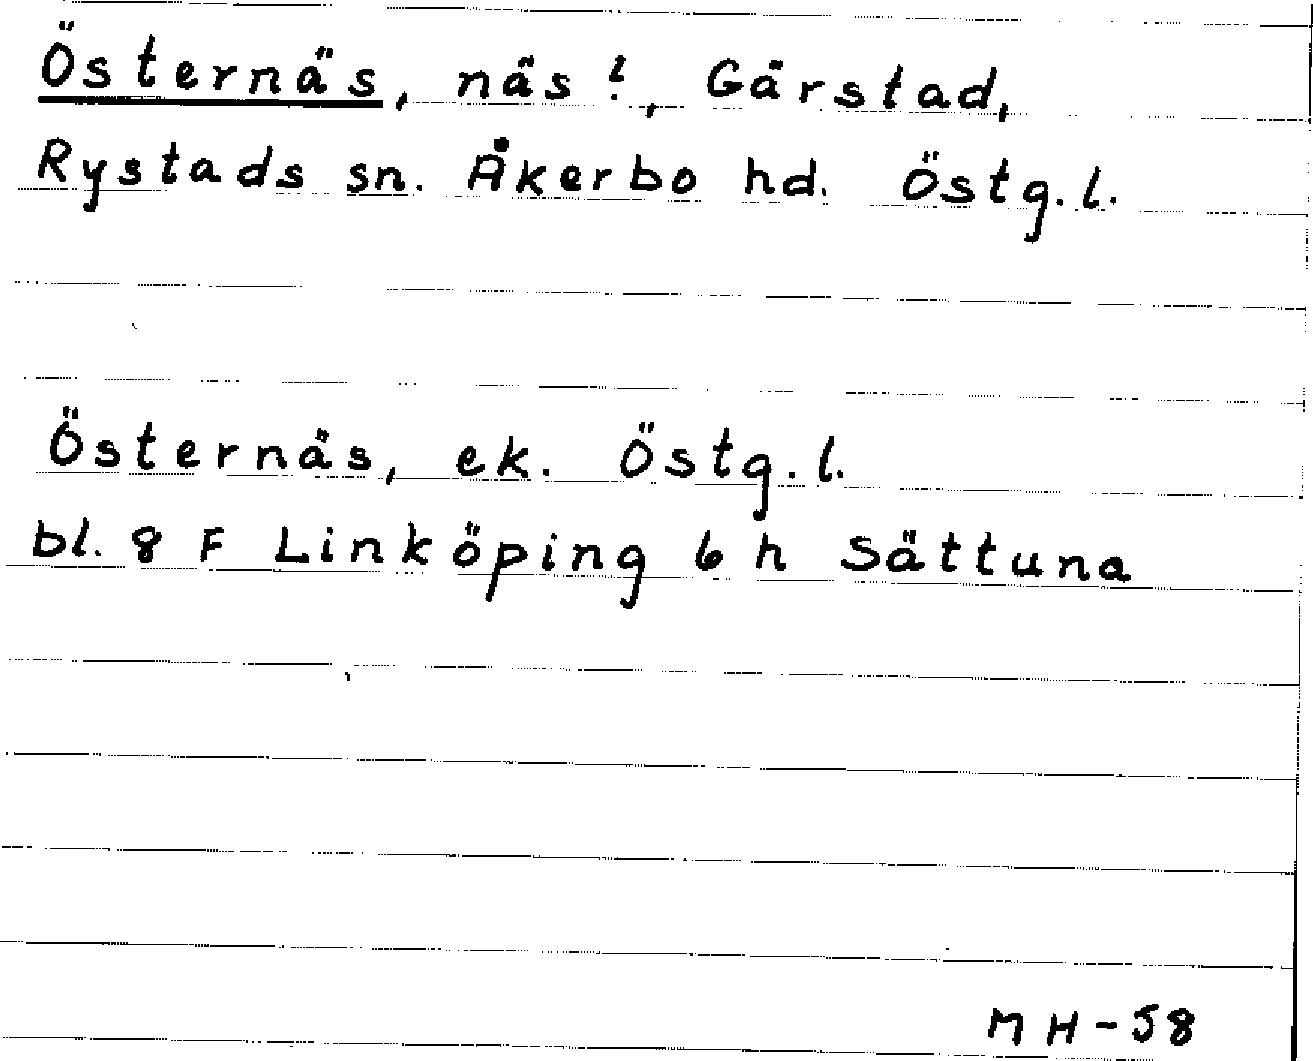 Östernäs, näs!, Gärstad,
Rystads sn. Åkerbo hd. Östg.l.
Östernäs, ek. Östg.l.
bl. 8 F Linköping 6 h Sättuna
MH-58